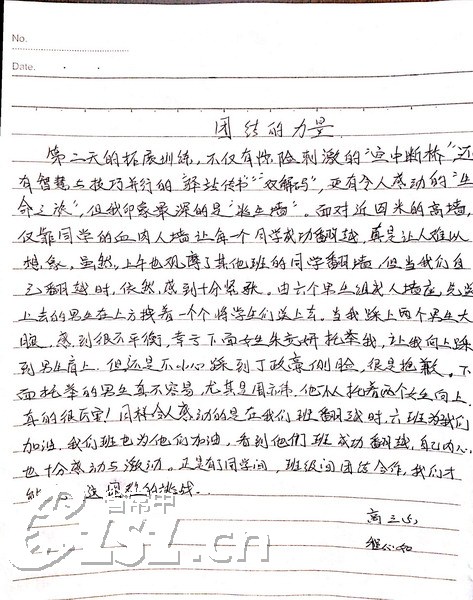 No.
Date.
团结的力量
第二天的拓展训练,不仅有惊险刺激的“空中断桥”还
有智慧与技巧并行的“驿站传书”“双解码”,更有令人感动的“生
命之旅”,但我印象最深的是“逃生墙”。面对近四米的高墙,
仅靠同学的血肉人墙让每一个同学成功翻越,真是让人难以
想象。虽然,上午也观摩了其他班的同学翻墙,但当我们自
己翻越时,依然感到十分紧张。由六个男生组成人墙底,先爬
上去的男生在上方拽着一个个将学生们送上去,当我踩上两个男生大
腿,感到很不平衡,幸亏下面女生朱奕妍托举我,让我向上踩
到男生肩上,但还是不小心踩到丁政豪侧脸,很是抱歉。下
面托举的男生真不容易,尤其是周 他 托着两个女生向上,
真的很厉害!同样令人感动的是在我们班翻越时,六班为我们
加油,我们班也为他们加油,看到他们班成功翻越,自己内心
也十分感动与激动。正是有了同学间,班级间团结合作,我们才
能 这 的挑战。
高三
智常帅
ZSL.cn